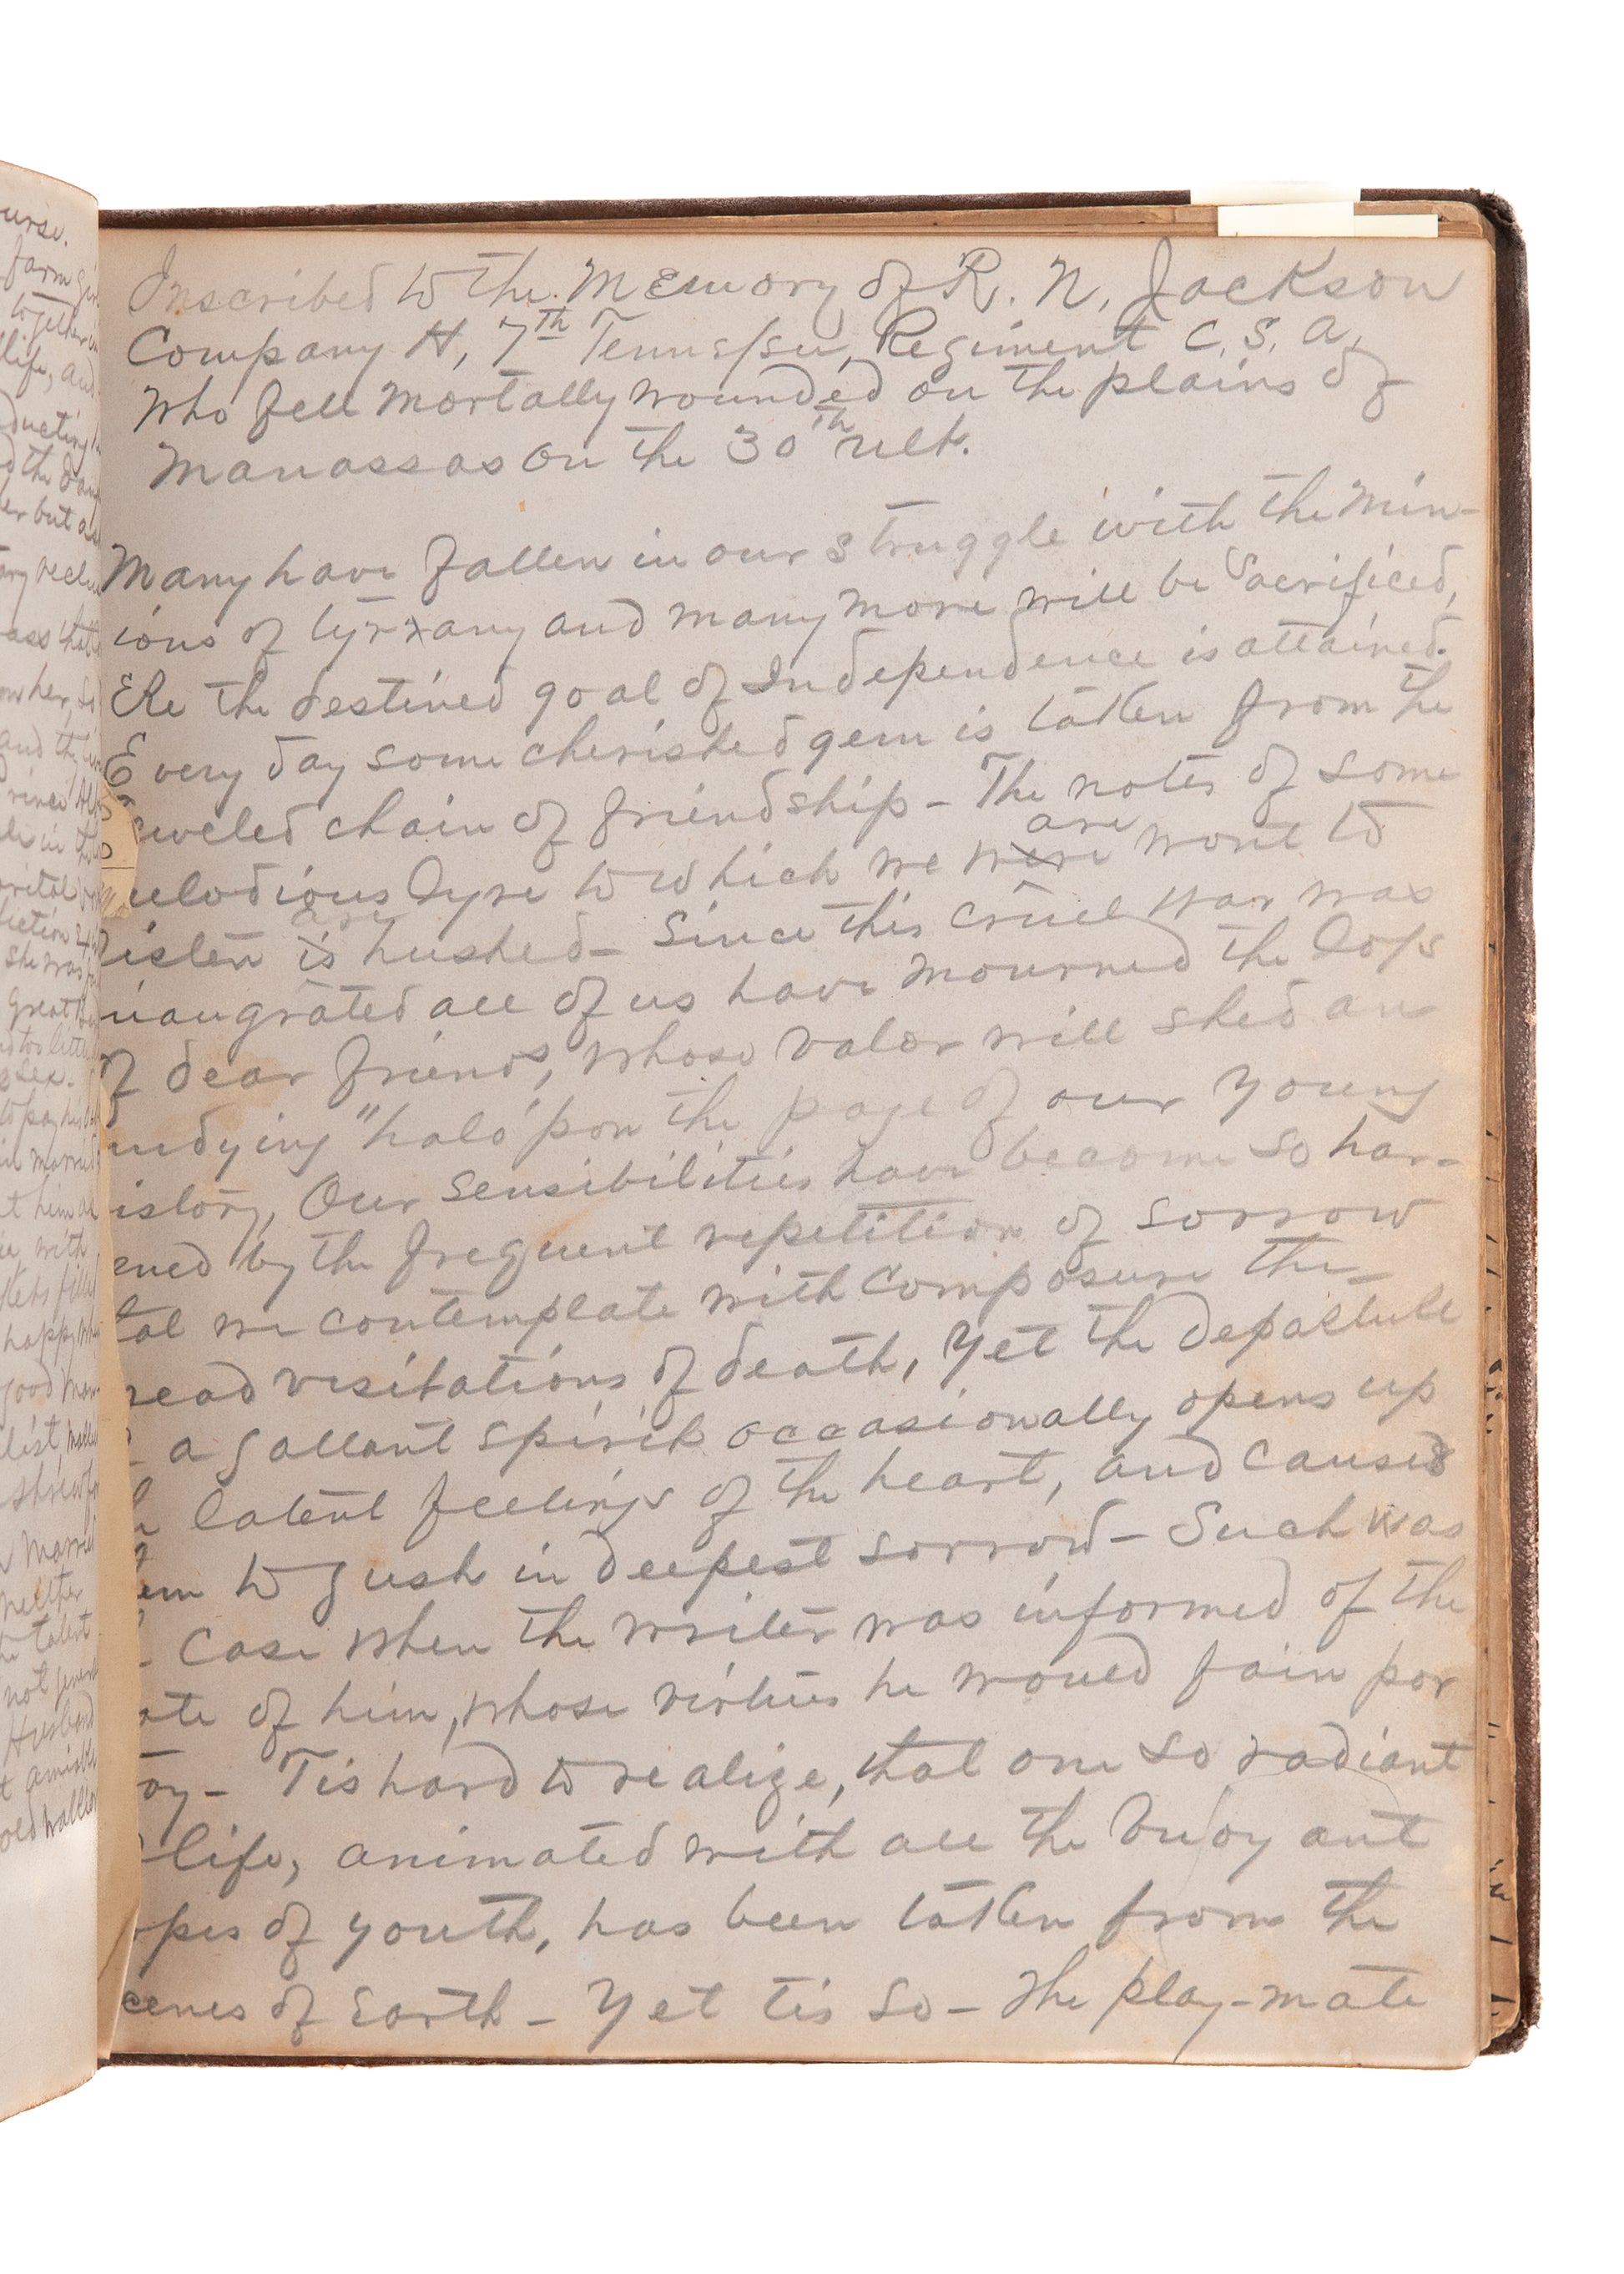 urse.
farm
together
life, and
ducting
d the
er but as
ass that
on her, so
and the
rince
in the
fiction
she was
Great
too little
sex.
to pay his
married
t him as
with
happy
good
list
Married
neither
talent
not
Husband
t amiable
old
Inscribed to the Memory of R. N. Jackson
Company H, 7th Tennessee, Regiment C. S. A.
Who fell Mortally wounded on the plains of
Manassas on the 30th ult.
Many have fallen in our struggle with the Min-
ions of tyrxany and many more will be Sacrificed,
ERe the destined goal of Independence is attained.
Every day some cherished gem is taken from the
eweled chain of friendship - The notes of some
elodious lyre to which we were are wont to
listen is are hushed - Since this cruel war was
naugrated all of us have mourned the loss
of dear friends, whose valor will shed an
undying "halo" pon the page of our young
istory, Our sensibilities have become so har-
ened by the frequent repetition of sorrow
tat we contemplate with composure the
read visitations of death, Yet the departure
a gallant spirit occasionally opens up
latent feelings of the heart, and causes
em to gush in deepest sorrow - Such was
Case when the writer was informed of the
ate of him, whose virtues he would fain por
ay - Tis hard to realize, that one so radiant
life, animated with all the buoyant
opes of youth, has been taken from the
cenes of Earth - Yet tis so - The play-mate